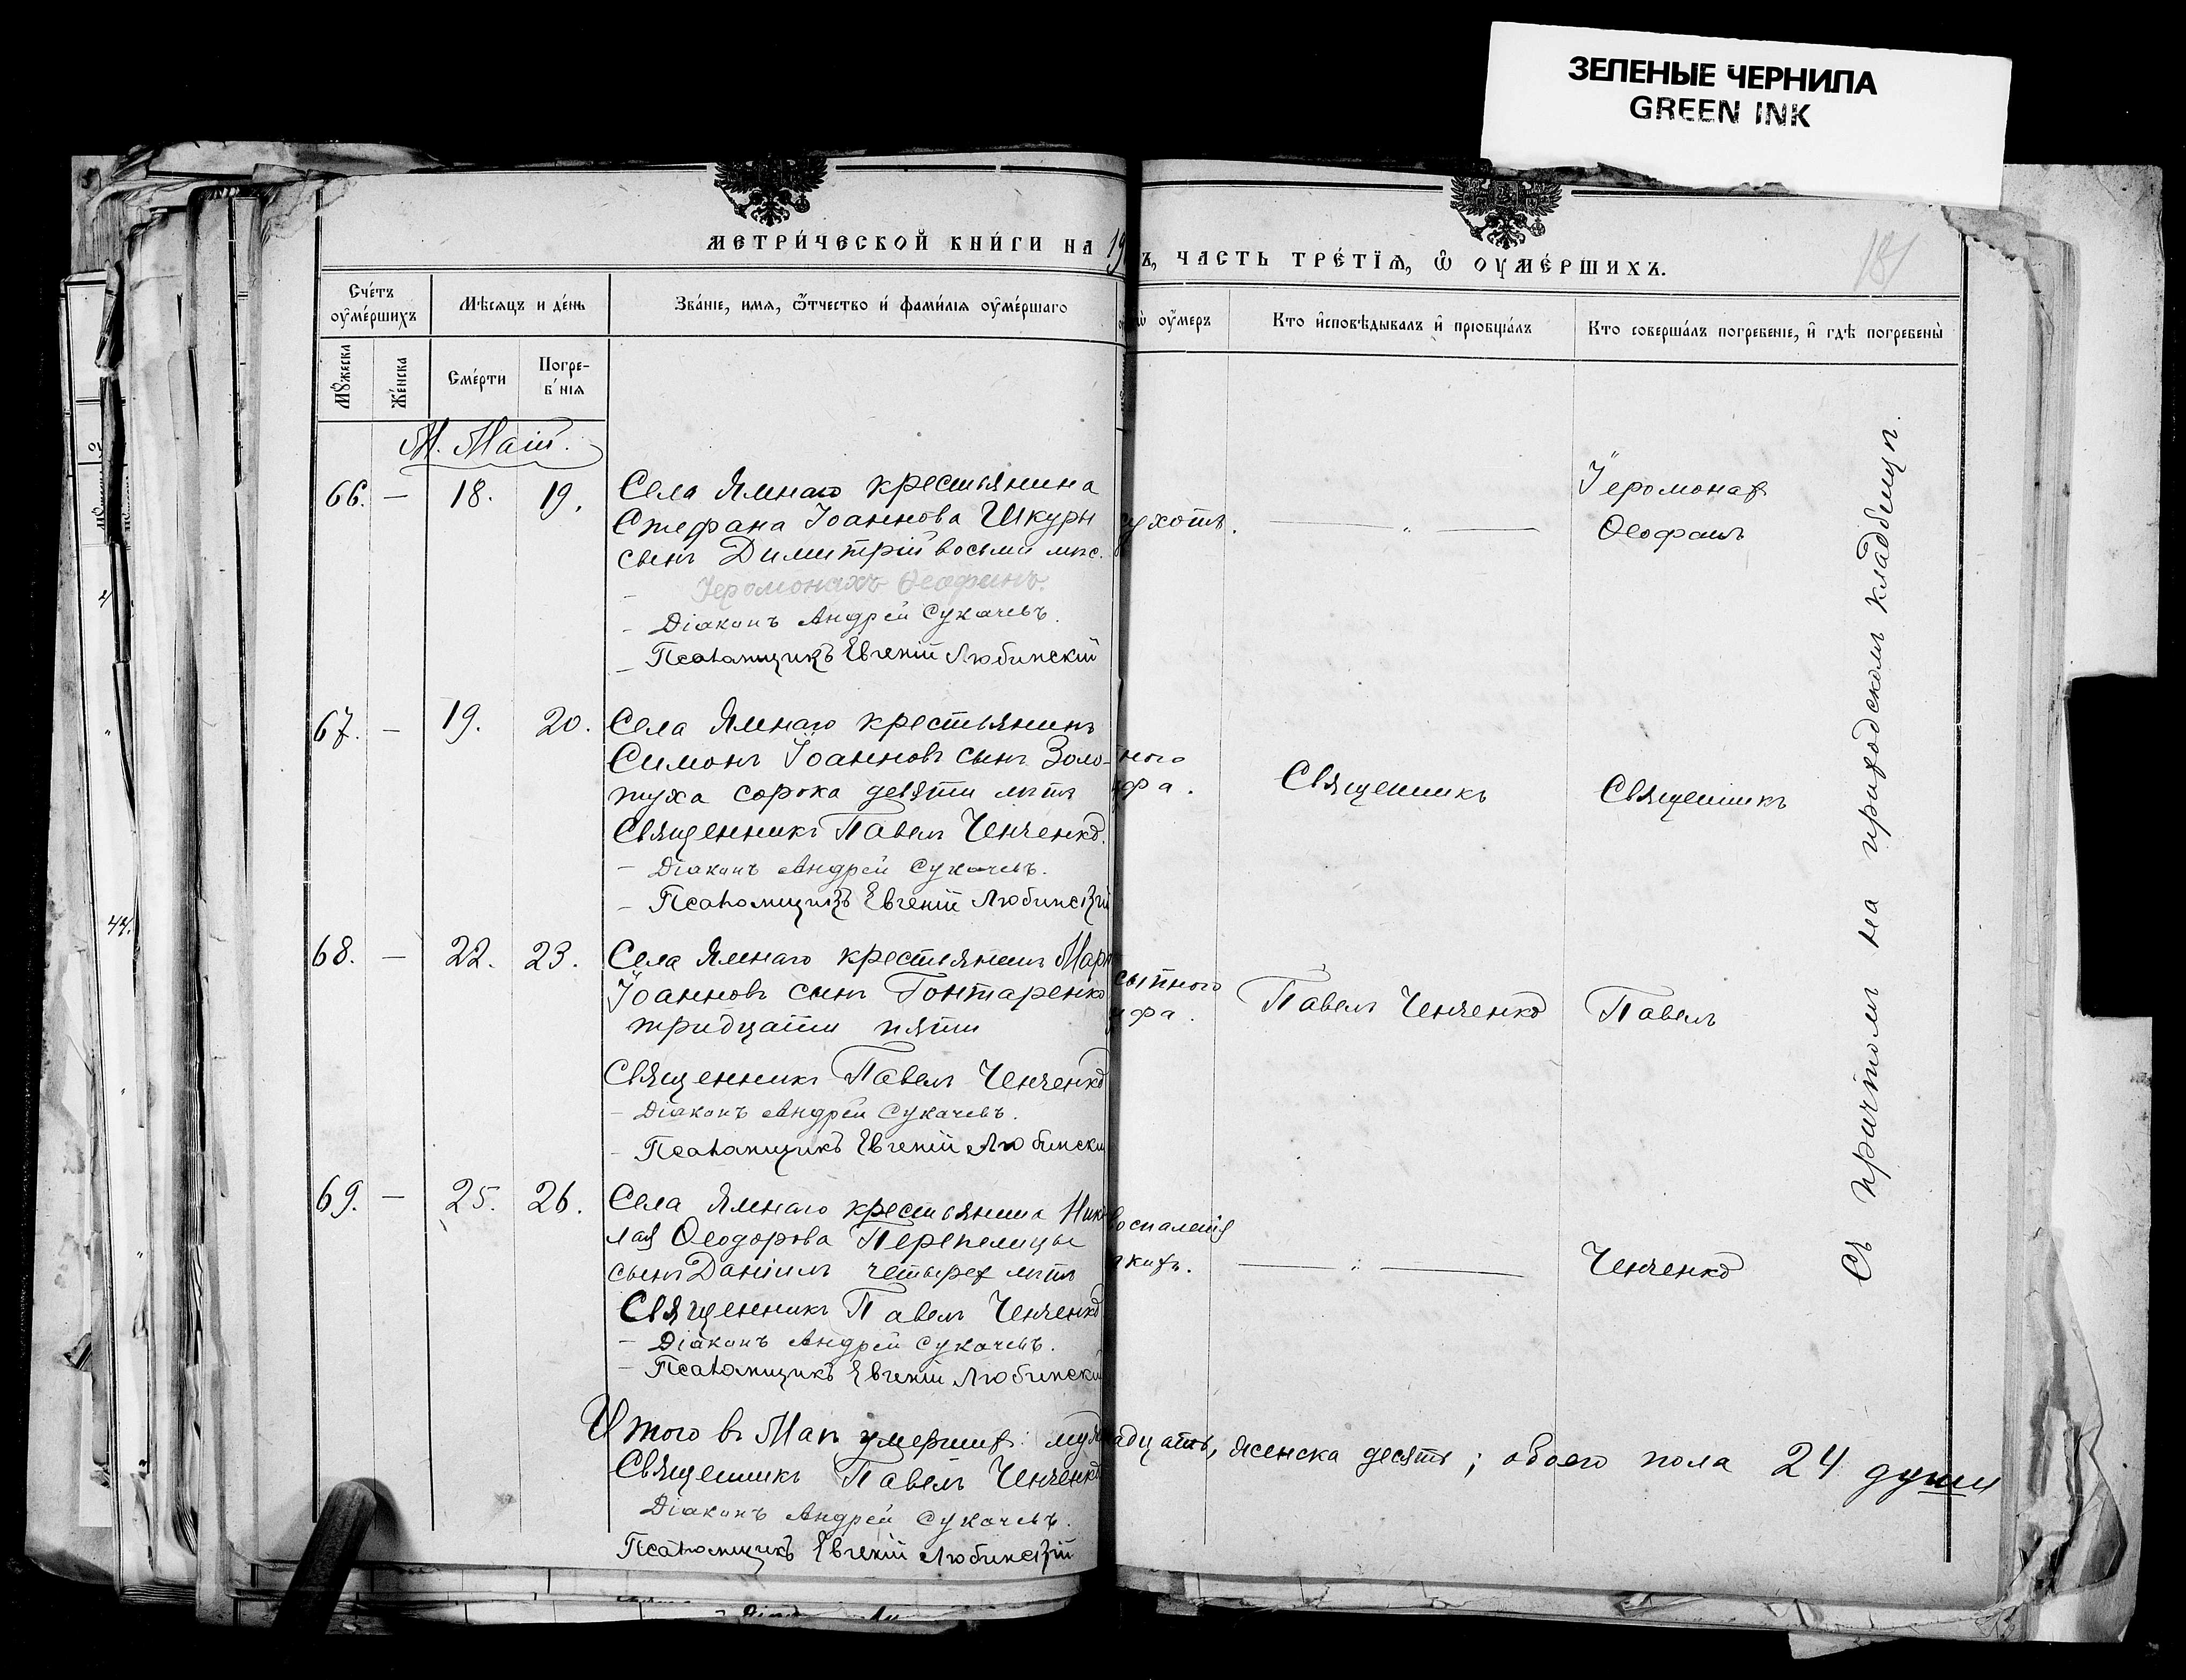 ЗЕЛЕНЫЕ ЧЕРНИЛА
GREEN INK
МЕТРИ́ЧЕСКОЙ КНИ́ГИ НА 19
Ъ, ЧАСТЬ ТРЕ́ТЇЯ, Ѽ ОУМЕ́РШИХЪ.
181
Сче́тъ оуме́ршихъ
Мѣсяцъ и де́нь
Зва́нїе, имя, ѿтчество и́ фами́лїя оуме́ршаго
ѿ оу́меръ
Кто и҆сповѣ́дывалъ и҆ прїобща́лъ
Кто соверша́лъ погребе́нїе, и҆ гдѣ̀ погребены̀
Мꙋ́жеска
Же́нска
Сме́рти
Погре-
б нїя
М. Маій.
66. — 18. 19.
Села Ямнаго крестьянина
Стефана Іоаннова Шкуры
сынъ Димитрій восьми мѣс.
Іеромонахъ Ѳеофанъ.
– Діаконъ Андрей Сукачевъ.
– Псаломщикъ Евгеній Любинскій
сухотъ.
— „ —
Іеромонах
Ѳеофанъ
67. — 19. 20.
Села Ямнаго крестьянинъ
Симонъ Іоанновъ сынъ Золо-
туха сорока девяти лѣтъ
Священникъ Павелъ Ченченко.
– Діаконъ Андрей Сукачевъ.
– Псаломщикъ Евгеній Любинскій
ного
ифа.
Священникъ
Священникъ
68. — 22. 23.
Села Ямнаго крестьянинъ Марк
Іоанновъ сынъ Гонтаренко
тридцати пяти
Священникъ Павелъ Ченченко
– Діаконъ Андрей Сукачевъ.
– Псаломщикъ Евгеній Любински
сыпного
ифа.
Павелъ Ченченко
Павелъ
69. — 25. 26.
Села Ямнаго крестьянина Нико
лая Ѳеодорова Перепелицы
сынъ Даніилъ четырех лѣтъ
Священникъ Павелъ Ченченко
– Діаконъ Андрей Сукачевъ.
– Псаломщикъ Евгеній Любински
воспаленія
гкихъ.
— „ —
Ченченко
Съ причтомъ на приходскомъ кладбищѣ.
Итого въ Маѣ умерших: муж адцать, женска десять; обоего пола 24 души
Священникъ Павелъ Ченченко
Діаконъ Андрей Сукачевъ.
Псаломщикъ Евгеній Любинскій
44.